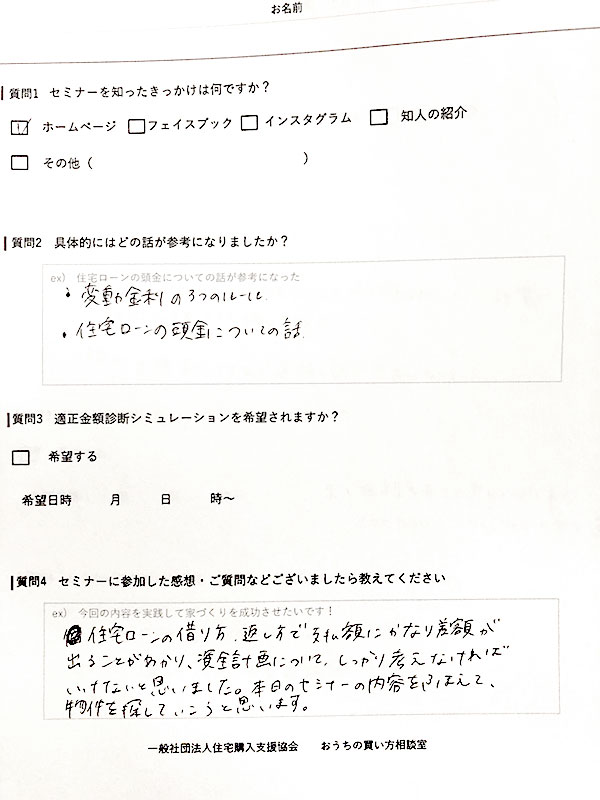 お名前
質問1 セミナーを知ったきっかけは何ですか？
ホームページ フェイスブック インスタグラム 知人の紹介
その他（ ）
質問2 具体的にはどの話が参考になりましたか？
ex) 住宅ローンの頭金についての話が参考になった
・変動金利の3つのルール
・住宅ローンの頭金についての話
質問3 適正金額診断シミュレーションを希望されますか？
希望する
希望日時 月 日 時～
質問4 セミナーに参加した感想・ご質問などございましたら教えてください
ex) 今回の内容を実践して家づくりを成功させたいです！
住宅ローンの借り方、返し方で支払額にかなり差額が
出ることがわかり、資金計画について、しっかり考えなければ
いけないと思いました。本日のセミナーの内容をふまえて、
物件を探していこうと思います。
一般社団法人住宅購入支援協会 おうちの買い方相談室